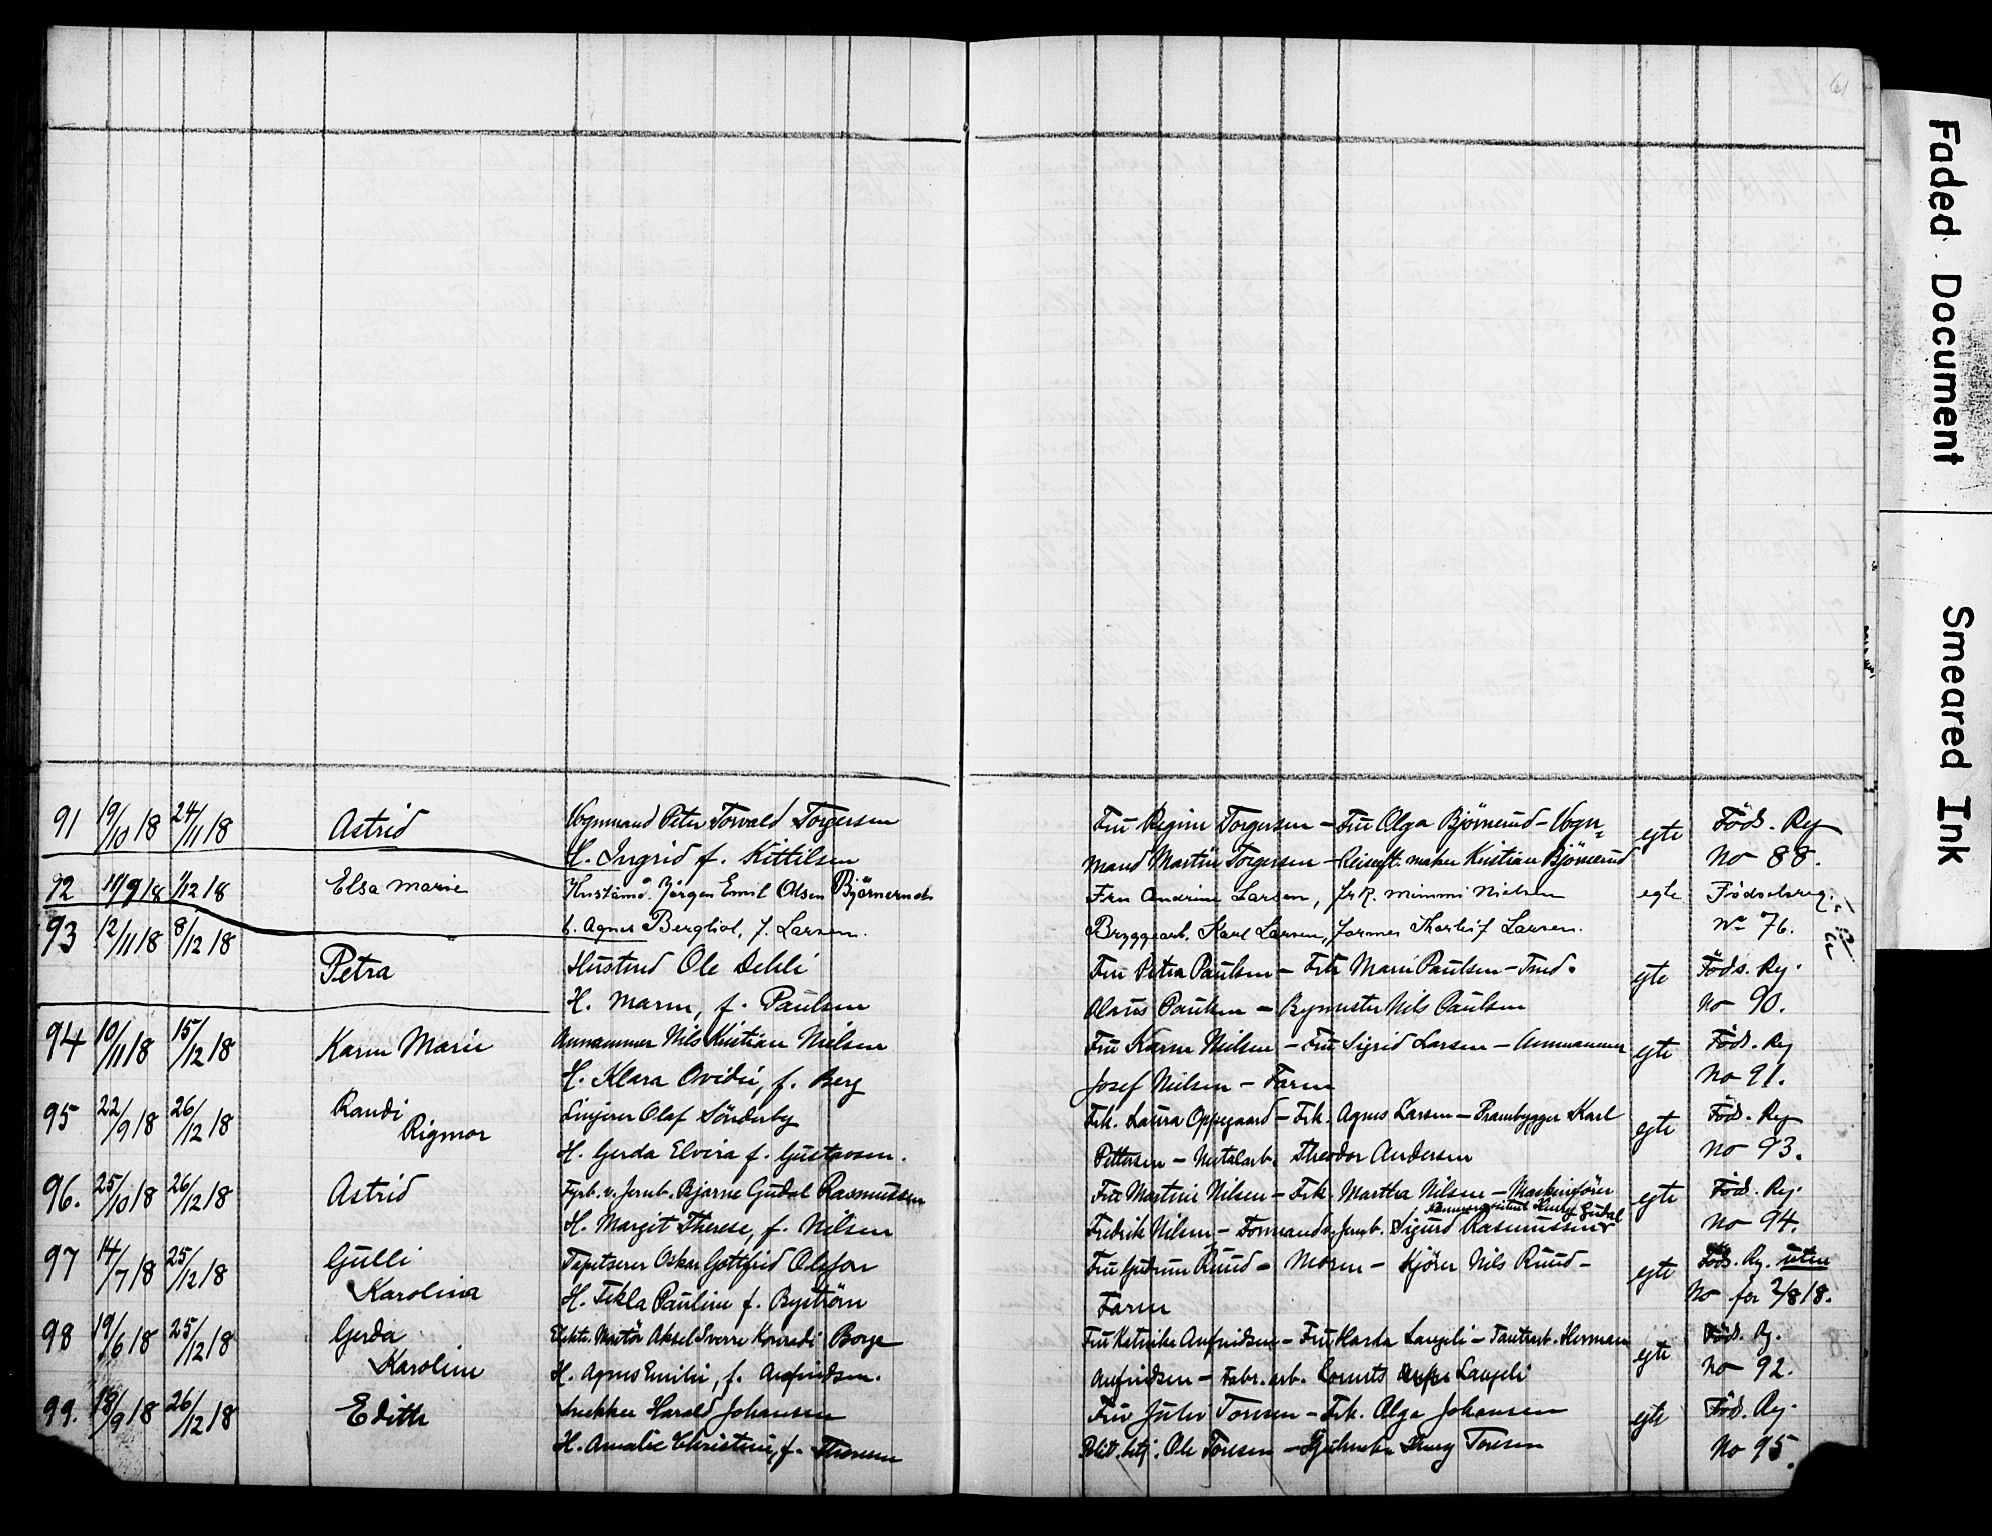 61
91 19/10 18 24/11 18 Astrid Vognmand Peter Torvald Torgersen Fru Regine Torgersen – Fru Olga Björnerud – Vogn= egte Föds. Reg
H. Ingrid f. Kittilsen mand Martin Torgersen – maker Kristian Björnerud No 88.
92 11/9 18 1/12 18 Elsa Marie Jörgen Emil Olsen Björnerud Fru Andrine Larsen, frk. Mimmi Nielsen egte Fødselsreg.
Agnes Bergliot, f. Larsen. Bryggearb. Karl Larsen, former Thorleif Larsen. No 76.
93 12/11 18 8/12 18 Petra Hustmd Ole Dehli Fru Petra Paulsen – Frk Marie Paulsen – egte Föds. Reg.
H. Maren, f. Paulsen Olaves Paulsen – Nils Paulsen No 90.
94 10/11 18 15/12 18 Karin Marie Nils Kristian Nielsen Fru Karen Nielsen – Fru Sigrid Larsen – egte Föds. Reg
H. Klara Ovidie, f. Berg Josef Nielsen – Faren No 91.
95 22/9 18 26/12 18 Randi Olaf Sönderby Frk. Laura Oppegaard – Frk. Agnes Larsen – Prambygger Karl egte Föds. Reg
Rigmor H. Gerda Elvira f. Gustavsen. Pettersen – Metalarb. Theodor Andersen No 93.
96. 25/10 18 26/12 18 Astrid Fyrb. v. Jernb. Bjarne Gudal Rasmussen Fru Martine Nilsen – Frk. Martha Nilsen – Maskinförer egte Föd. Reg.
Henry Gudal
H. Margit Therese, f. Nilsen Fredrik Nilsen – Formand v. Jernb. Sigurd Rasmussen No 94.
97 14/7 18 25/12 18 Gulli Tapetserer Oskar Gottfrid Olsson Fru Gudrun Ruud – Moren – Kjörer Nils Ruud – egte Föds. Reg. uten
Karolina H. Tekla Pauline f. Byström Faren No for 2/8 18.
98 19/6 18 25/12 18 Gerda Elektr. Montör Aksel Sverre Konradi Borge Fru Katrine Anfindsen – Fru Langeli – Herman egte Föd. Reg.
Karoline H. Agnes Emilie, f. Anfindsen. Anfindsen – Fabr. arb. Langeli No 92.
99. 18/9 18 26/12 18 Edith Snekker Harald Johansen Fru Julie Toresen – Frk. Olga Johansen egte Föd. Reg.
H. Amalie Christine, f. Thoresen Polit. betj. Ole Toresen – Henry Toresen No 95.
Faded Document
Smeared Ink